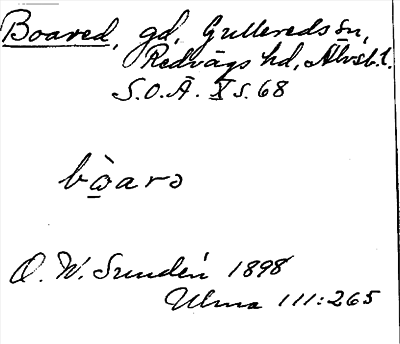 Boared, gd, Gullereds sn,
Redvägs hd, Älvsb. l.
S.O.Ä. X s. 68
bo̠̊̀arə
O. W. Sundén 1898
Ulma 111:265